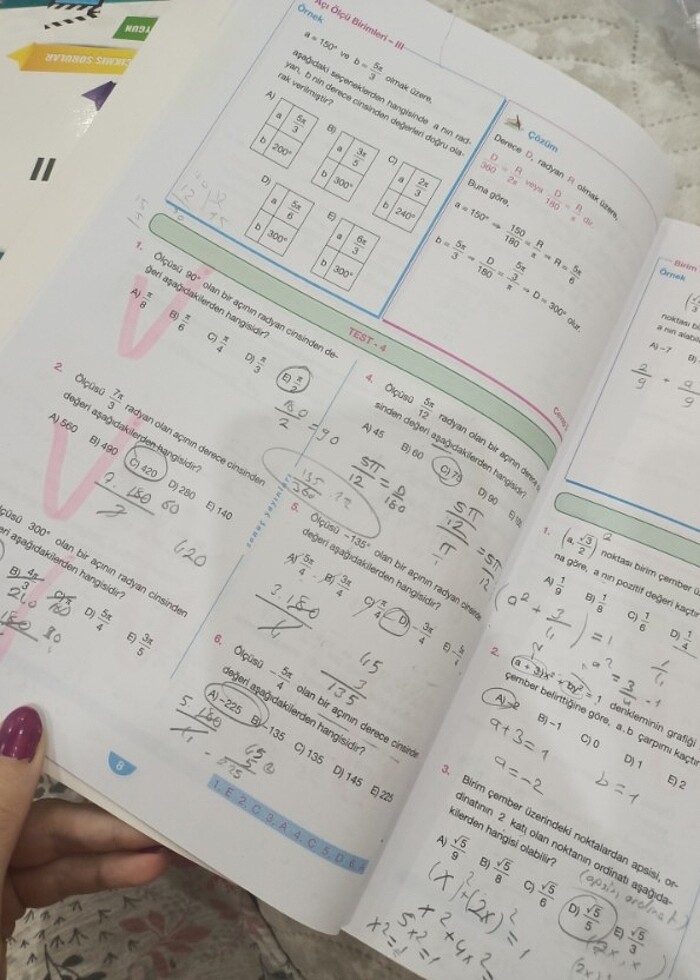 YGUN
ÇIKMIŞ SORULAR
II
Açı Ölçü Birimleri – III
Örnek
a = 150° ve b = 5π/3 olmak üzere,
aşağıdaki seçeneklerden hangisinde a nın rad-
yan, b nin derece cinsinden değerleri doğru ola-
rak verilmiştir?
A) a 5π/3 b 200°
B) a 3π/5 b 300°
C) a 2π/3 b 240°
D) a 5π/6 b 300°
E) a 6π/3 b 300°
Çözüm
Derece D, radyan R olmak üzere,
D/360 = R/2π veya D/180 = R/π dir.
Buna göre,
a = 150° ⇒ 150/180 = R/π ⇒ R = 5π/6
b = 5π/3 ⇒ D/180 = 5π/3/π ⇒ D = 300° olur.
TEST - 4
1. Ölçüsü 90° olan bir açının radyan cinsinden de-
ğeri aşağıdakilerden hangisidir?
A) π/8 B) π/6 C) π/4 D) π/3 E) π/2
180/2 = 90
2. Ölçüsü 7π/3 radyan olan açının derece cinsinden
değeri aşağıdakilerden hangisidir?
A) 560 B) 490 C) 420 D) 280 E) 140
60
420
çüsü 300° olan bir açının radyan cinsinden
eri aşağıdakilerden hangisidir?
B) 4π/3 D) 5π/4 E) 3π/5
4. Ölçüsü 5π/12 radyan olan bir açının derece
sinden değeri aşağıdakilerden hangisidir?
A) 45 B) 60 C) 75 D) 90
5π/12 = D/180
5π/12/π = 5π/12
sonuç yayınları
5. Ölçüsü –135° olan bir açının radyan cinsinden
değeri aşağıdakilerden hangisidir?
A) 5π/4 B) 3π/4 C) π/4 D) –3π/4 E) –5π/4
3.180/4
45
3
135
6. Ölçüsü –5π/4 olan bir açının derece cinsinden
değeri aşağıdakilerden hangisidir?
A) –225 B) –135 C) 135 D) 145 E) 225
5.180/4
45
5
225
8
1. E 2. C 3. A 4. C 5. D 6. A
Birim
Örnek
noktası bi
a nın alabile
A) –7 B)
2/9 + a/9
1. (a, √3/2) noktası birim çember ü
na göre, a nın pozitif değeri kaçtır
A) 1/9 B) 1/8 C) 1/6 D) 1/4
(a² + 3/4) = 1
2. (a + 3)x² + by² = 1 denkleminin grafiği
çember belirttiğine göre, a.b çarpımı kaçtır
A) –2 B) –1 C) 0 D) 1 E) 2
a+3=1
a=-2
b=1
3. Birim çember üzerindeki noktalardan apsisi, or-
dinatının 2 katı olan noktanın ordinatı aşağıda-
kilerden hangisi olabilir?
A) √5/9 B) √5/8 C) √5/6 D) √5/5 E) √5/3
(apsis, ordinat)
(x)²+(2x)²=1
x²+4x²
5x²=1
(2x, x